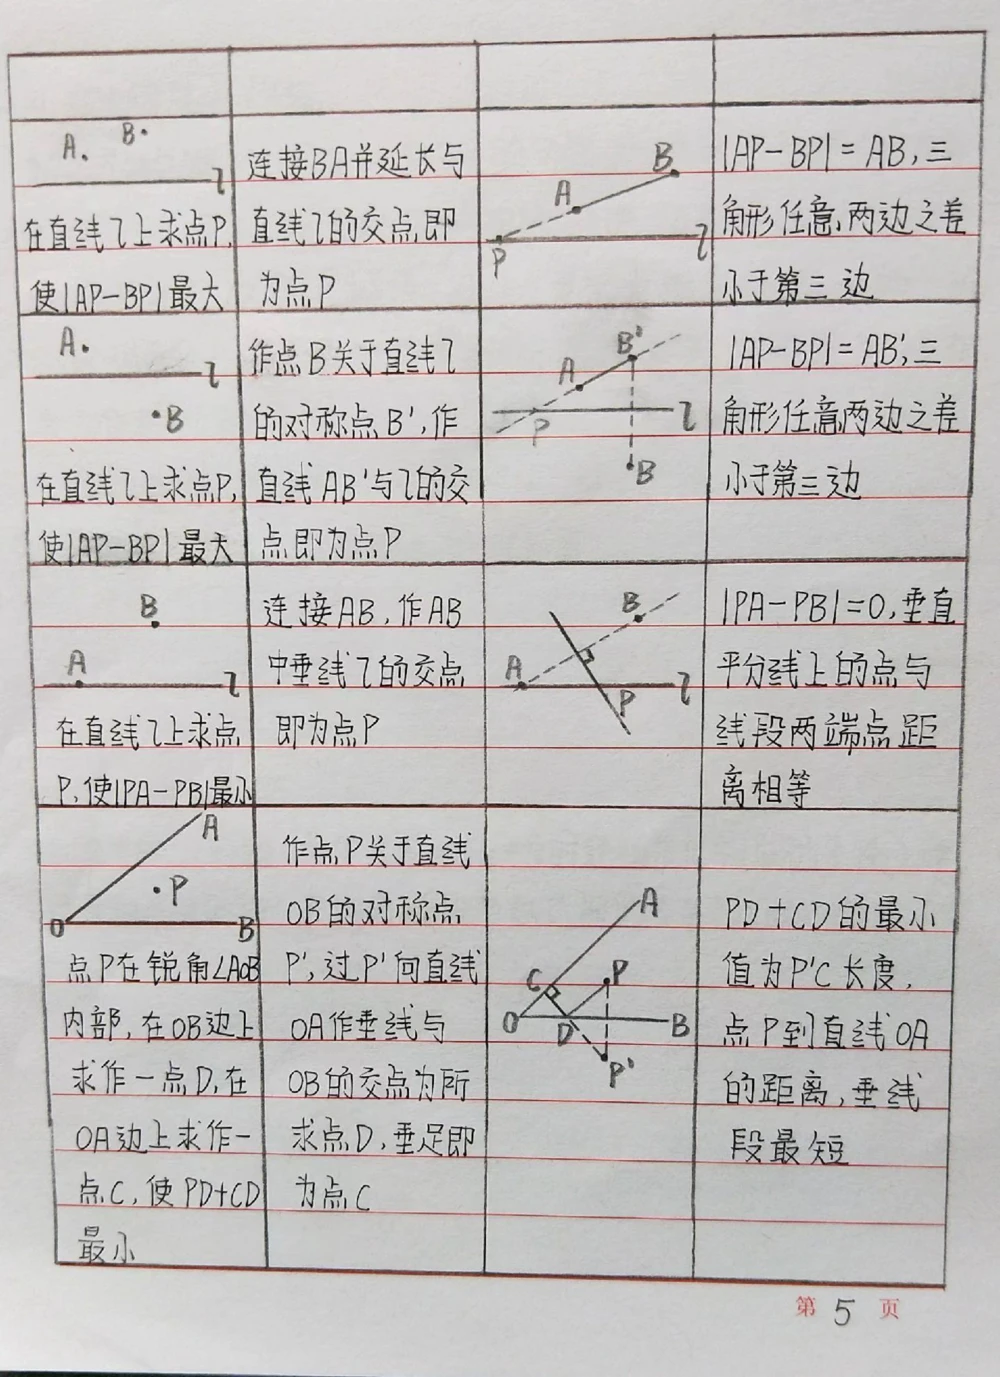 A. B.
l
在直线l上求点P,
使|AP-BP|最大
连接BA并延长与
直线l的交点,即
为点P
B
A
P
l
|AP-BP|=AB,三
角形任意两边之差
小于第三边
A.
l
B
在直线l上求点P,
使|AP-BP|最大
作点B关于直线l
的对称点B',作
直线AB'与l的交
点即为点P
B'
A
P
l
B
|AP-BP|=AB',三
角形任意两边之差
小于第三边
B
A
l
在直线l上求点
P,使|PA-PB|最小
连接AB,作AB
中垂线l的交点
即为点P
B
A
P
l
|PA-PB|=0,垂直
平分线上的点与
线段两端点距
离相等
A
P
O B
点P在锐角∠AOB
内部,在OB边上
求作一点D,在
OA边上求作一
点C,使PD+CD
最小
作点P关于直线
OB的对称点
P',过P'向直线
OA作垂线与
OB的交点为所
求点D,垂足即
为点C
A
C P
O D B
P'
PD+CD的最小
值为P'C长度,
点P到直线OA
的距离,垂线
段最短
第 5 页